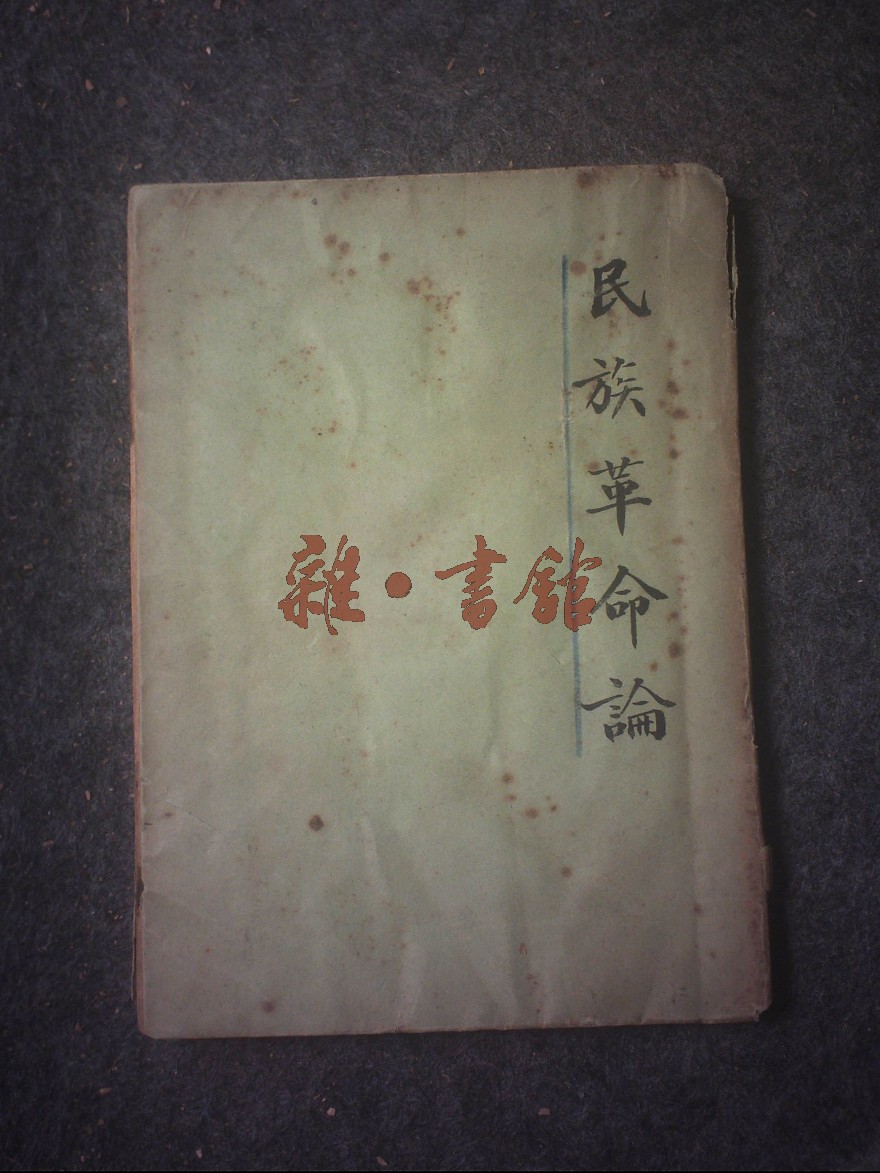 民族革命論
雜·書館